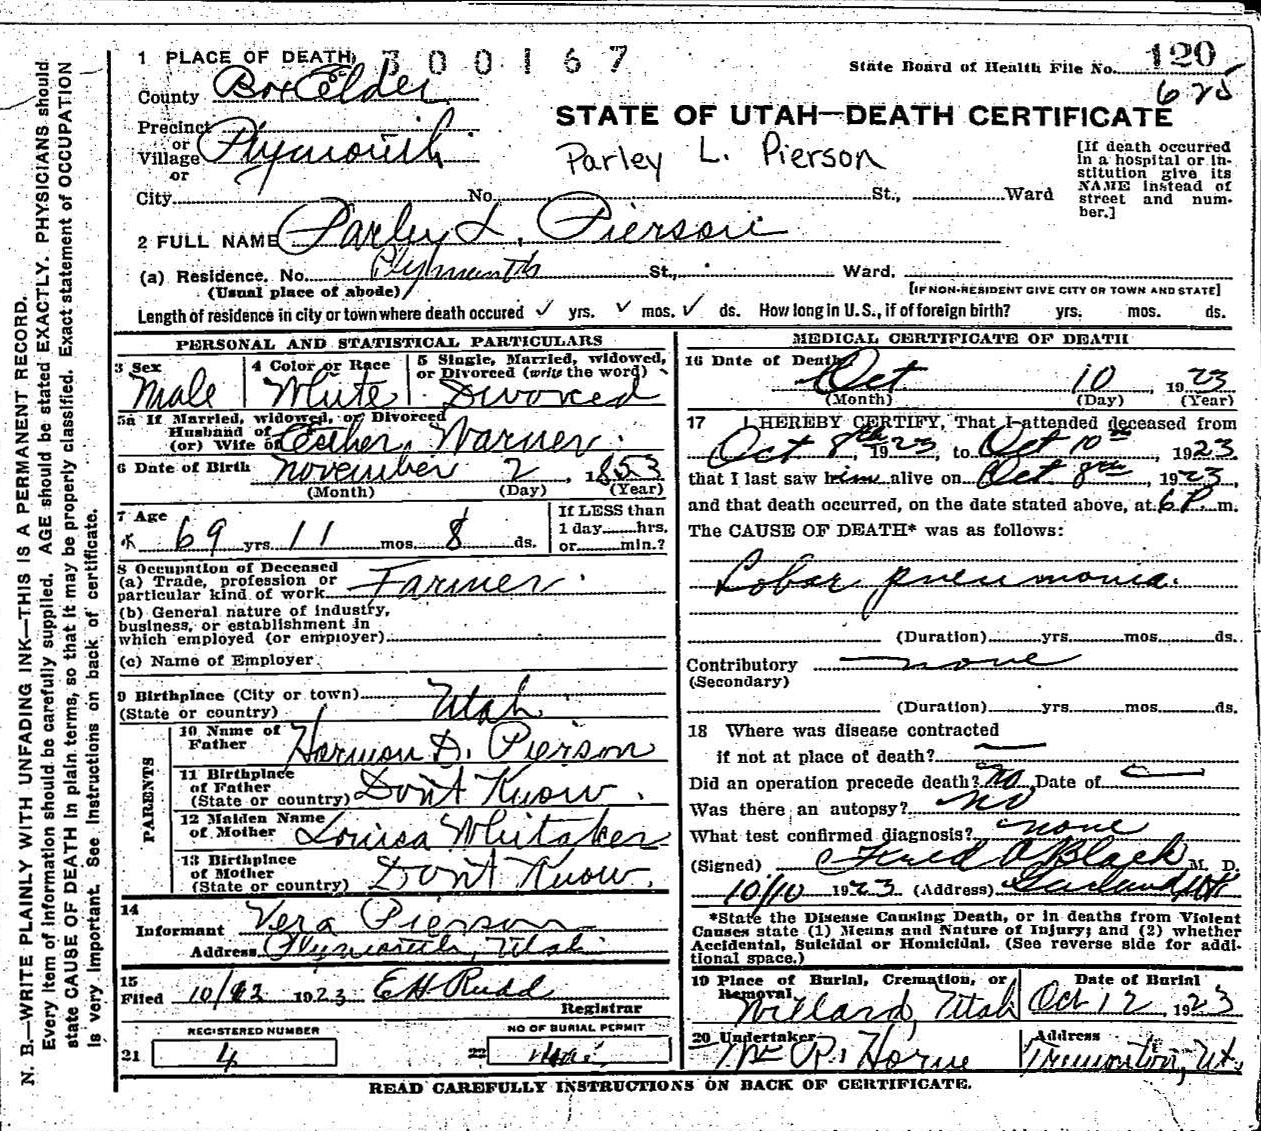 1 PLACE OF DEATH 300167
State Board of Health File No. 120
625
County Box Elder
STATE OF UTAH—DEATH CERTIFICATE
Precinct
or
Village Plymouth
or
Parley L. Pierson
[If death occurred in a hospital or institution give its NAME instead of street and number.]
City No. St., Ward
2 FULL NAME Parley L. Pierson
(a) Residence, No. Plymouth St., Ward,
(Usual place of abode) [IF NON-RESIDENT GIVE CITY OR TOWN AND STATE]
Length of residence in city or town where death occured ✓ yrs. ✓ mos. ✓ ds. How long in U.S., if of foreign birth? yrs. mos. ds.
PERSONAL AND STATISTICAL PARTICULARS
3 Sex Male
4 Color or Race White
5 Single, Married, widowed, or Divorced (write the word) Divorced
5a If Married, widowed, or Divorced
Husband of
(or) Wife of Esther Warner.
6 Date of Birth November 2, 1853
(Month) (Day) (Year)
7 Age
69 yrs 11 mos. 8 ds.
If LESS than
1 day hrs.
or min.?
8 Occupation of Deceased
(a) Trade, profession or
particular kind of work Farmer
(b) General nature of industry,
business, or establishment in
which employed (or employer)
(c) Name of Employer
9 Birthplace (City or town)
(State or country) Utah
PARENTS
10 Name of Father Hermon D. Pierson
11 Birthplace of Father (State or country) Don't Know.
12 Maiden Name of Mother Louisa Whitaker
13 Birthplace of Mother (State or country) Don't Know.
14
Informant Vera Pierson
Address Plymouth, Utah
15
Filed 10/12 1923 E H Rudd
Registrar
REGISTERED NUMBER
21 4
NO OF BURIAL PERMIT
22
MEDICAL CERTIFICATE OF DEATH
16 Date of Death Oct 10 1923
(Month) (Day) (Year)
17 I HEREBY CERTIFY, That I attended deceased from
Oct 8th, 1923, to Oct 10th, 1923
that I last saw him alive on Oct 8th, 1923,
and that death occurred, on the date stated above, at 6 P. m.
The CAUSE OF DEATH* was as follows:
Lobar pneumonia.
(Duration) yrs. mos. ds.
Contributory none
(Secondary)
(Duration) yrs. mos. ds.
18 Where was disease contracted
if not at place of death? —
Did an operation precede death? No Date of —
Was there an autopsy? No
What test confirmed diagnosis? none
(Signed) Fred O Black M. D.
10/10 1923 (Address) Garland Ut
*State the Disease Causing Death, or in deaths from Violent
Causes state (1) Means and Nature of Injury; and (2) whether
Accidental, Suicidal or Homicidal. (See reverse side for additional space.)
19 Place of Burial, Cremation, or Removal Willard, Utah
Date of Burial Oct 12 1923
20 Undertaker Wm R. Horne
Address Tremonton, Ut.
READ CAREFULLY INSTRUCTIONS ON BACK OF CERTIFICATE.
N. B.—WRITE PLAINLY WITH UNFADING INK—THIS IS A PERMANENT RECORD.
Every item of information should be carefully supplied. AGE should be stated EXACTLY. PHYSICIANS should
state CAUSE OF DEATH in plain terms, so that it may be properly classified. Exact statement of OCCUPATION
is very important. See instructions on back of certificate.